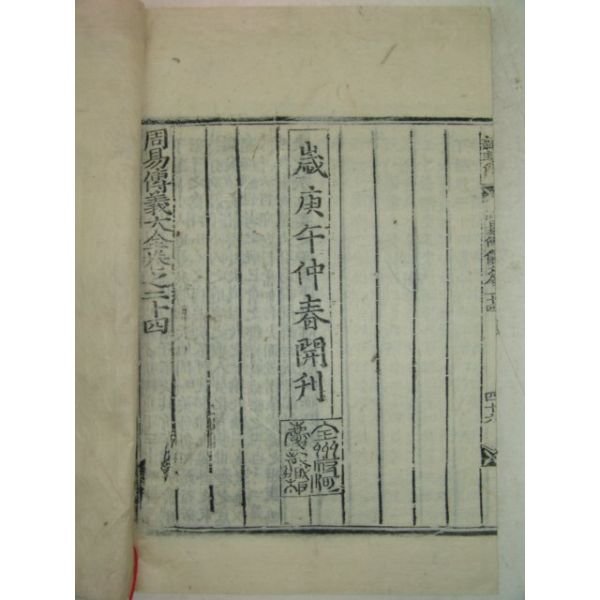 四十六
歲庚午仲春開刊
全州府河
慶龍藏板
周易傳義大全卷之二十四